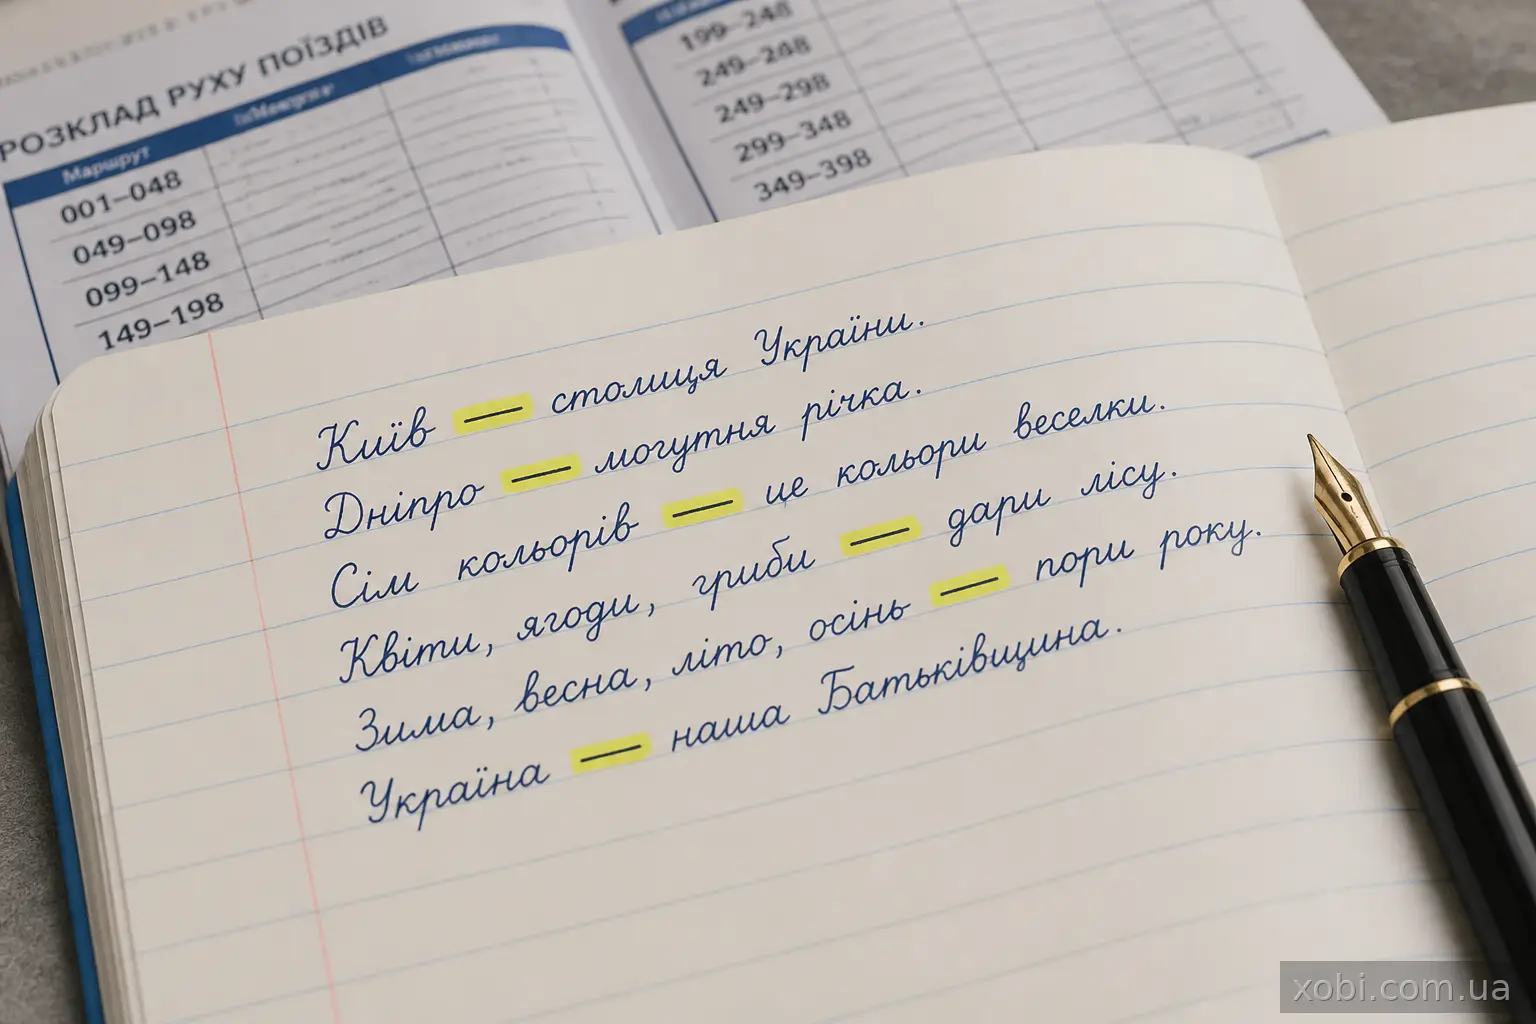 РОЗКЛАД РУХУ ПОЇЗДІВ
Маршрут
001–048
049–098
099–148
149–198
199–248
249–248
249–298
299–348
349–398
Київ — столиця України.
Дніпро — могутня річка.
Сім кольорів — це кольори веселки.
Квіти, ягоди, гриби — дари лісу.
Зима, весна, літо, осінь — пори року.
Україна — наша Батьківщина.
xobi.com.ua